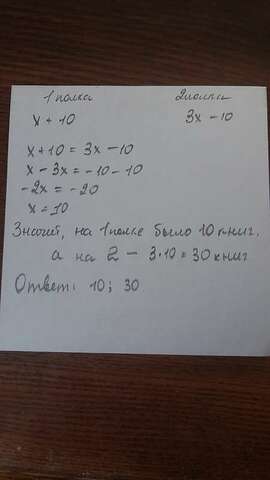 1 полка 2 полка
x + 10 3x - 10
x + 10 = 3x - 10
x - 3x = -10 - 10
-2x = -20
x = 10
Значит, на 1 полке было 10 книг,
а на 2 - 3·10 = 30 книг
Ответ: 10; 30